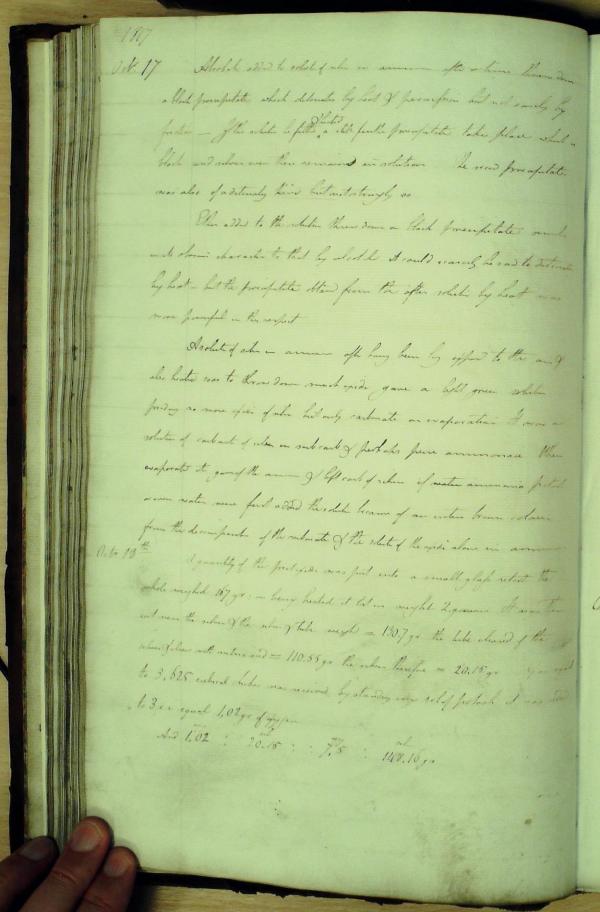 1817
Octr. 17 Alcohol added to solut of silver in ammonia after a time throws down
a black precipitate which detonates by heat & percussion but not easily by
friction — If the solution is filtered & heated a still further precipitate takes place which is
black and silver even then remains in solution The second precipitate
was also of a detonating kind but not strongly so
Ether added to the solution throws down a black precipitate
character to that by alcohol It could scarcely be said to detonate
by heat — but the precipitate obtained from the after solution by heat was
more powerful in this respect
A solut of silver in ammonia after having been long exposed to the air &
also heated so as to throw down much oxide gave a light green solution
no more oxide of silver but only carbonate on evaporation It was a
solution of carbonate of silver in subcarb & perhaps pure ammonia When
evaporated it gave off the ammonia & left carb of silver if water ammonia potash
or even water were first added the solution became of an brown colour
from the decomposition of the carbonate & the solution of the oxide alone in ammonia
Octr. 18th A quantity of the protoxide was put into a small glass retort the
whole weighed 167 gr: — being heated it lost in weight 2 grains It was then
cut near the silver & the silver & tube weighed = 130.7 gr the tube cleared of the
silver with nitric acid = 110.55 gr the silver therefore = 20.15 gr
to 3.625 cubical inches was received by standing over sol of potash it was reduced
to 3 = equal 1.02 gr of oxygen
And 1.02 : 20.15 : : 7.5 : 148.16 gr